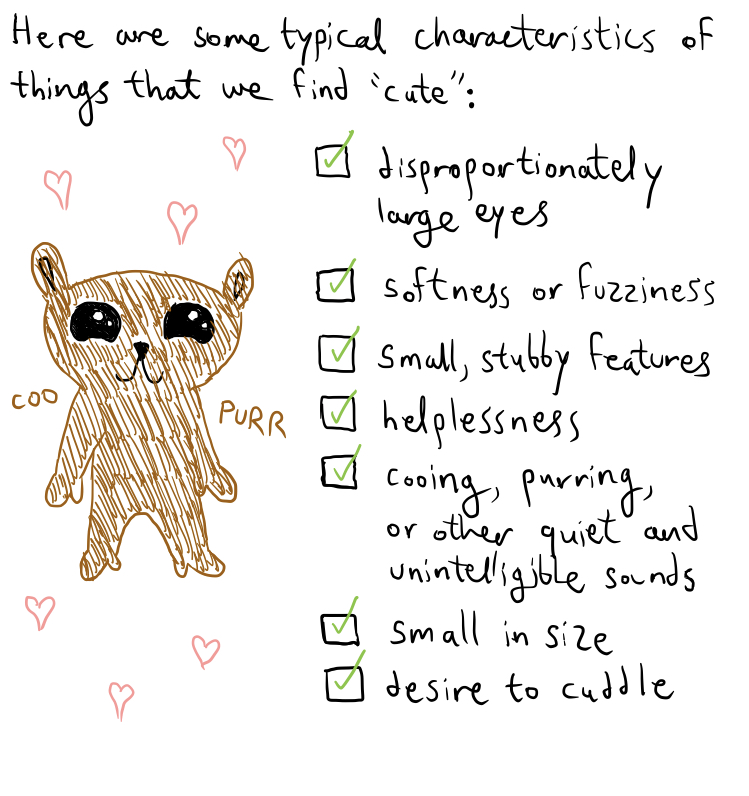 Here are some typical characteristics of
things that we find "cute":
disproportionately
large eyes
softness or fuzziness
small, stubby features
COO
PURR
helplessness
cooing, purring,
or other quiet and
unintelligible sounds
small in size
desire to cuddle